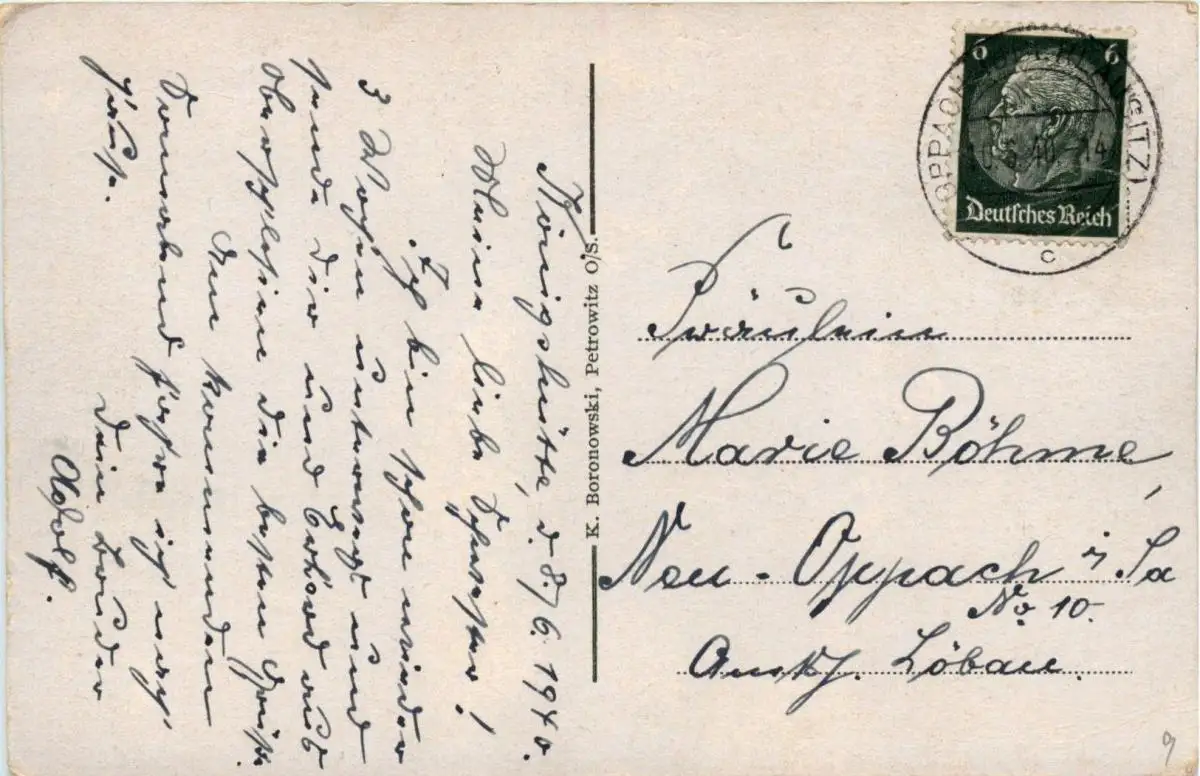 Königshütte, d. 8./6. 1940.
Meine liebe Schwester!
Ich bin schon wieder
3 Wochen unterwegs und
sende dir und Erhard aus
Oberschlesien die besten Grüße.
Am kommenden
Sonnabend fahre ich nach
Hause.
Dein Bruder
Adolf.
K. Boronowski, Petrowitz O/S.
6 6
Deutsches Reich
OPPACH (LAUSITZ)
10.6.40.-14
c
Fräulein
Marie Böhme
Neu-Oppach i/Sa
No 10.
Amtsh. Löbau.
9